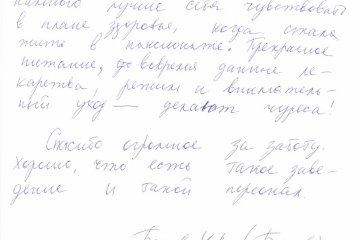 намного лучше себя чувствовать
в плане здоровья, когда стала
жить в пансионате. Прекрасное
питание, до вовремя данные ле-
карства, режим и вниматель-
ный уход — делают чудеса!
Спасибо огромное за заботу.
Хорошо, что есть такое заве-
дение и такой персонал